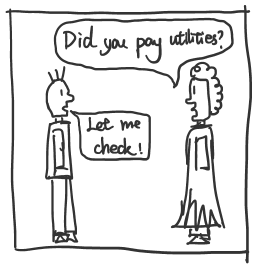 Did you pay utilities?
Let me
check!